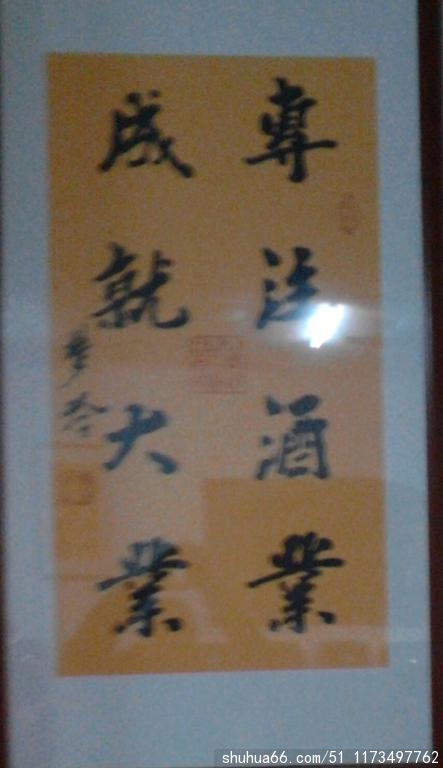 專注酒業
成就大業
shuhua66.com/51 1173497762